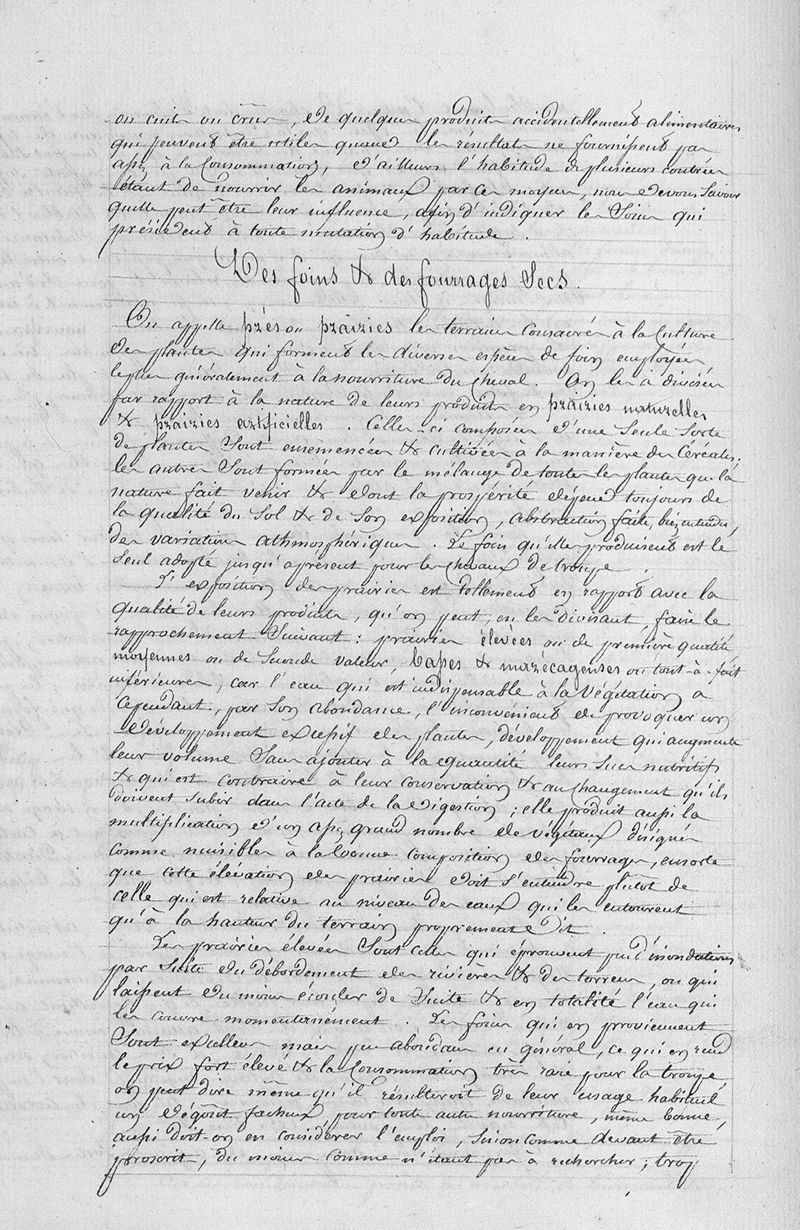 ou cuits ou crus, & de quelques produits accidentellement alimentaires
qui peuvent être utiles quand les résultats ne fournissent pas
assez à la Consommation, d'ailleurs l'habitude de plusieurs contrées
étant de nourrir les animaux par ce moyen, nous devons savoir
quelle peut être leur influence, afin d'indiquer les Soins qui
président à toute mutation d'habitude.
Des foins & des fourrages Secs.
On appelle prés ou prairies les terrains consacrés à la Culture
des plantes qui forment les diverses espèces de foin employées
le plus généralement à la nourriture du cheval. On les a divisées
par rapport à la nature de leurs produits en prairies naturelles
& prairies artificielles. Celles-ci composées d'une Seule Sorte
de plantes Sont ensemencées & cultivées à la manière des Céréales;
les autres Sont formées par le mélange de toutes les plantes que la
nature fait venir & dont la prospérité dépend toujours de
la qualité du Sol & de Son exposition, abstraction faite, bien entendu,
des variations athmosphériques. Le foin qu'elles produisent est le
Seul adopté jusqu'à présent pour les chevaux de troupe.
L'exposition des prairies est tellement en rapport avec la
qualité de leurs produits, qu'on peut, en les divisant, faire le
rapprochement Suivant: prairies élevées ou de première qualité
moyennes ou de Seconde valeur, basses & marécageuses ou tout-à-fait
inférieures, car l'eau qui est indispensable à la Végétation a
Cependant, par Son abondance, l'inconvénient de provoquer un
développement excessif des plantes, développement qui augmente
leur volume Sans ajouter à la quantité leurs Sucs nutritifs
& qui est contraire à leur conservation & au changement qu'ils
doivent subir dans l'acte de la digestion; elle produit aussi la
multiplication d'un assez grand nombre de végétaux désignés
comme nuisibles à la bonne composition des fourrages, en sorte
que cette élévation des prairies doit s'entendre plutôt de
celle qui est relative au niveau des eaux qui les entourent
qu'à la hauteur du terrain proprement dit.
Les prairies élevées Sont celles qui éprouvent peu d'inondations
par Suite du débordement des rivières & des torrens, ou qui
laissent du moins écouler de Suite & en totalité l'eau qui
les couvre momentanément. Les foins qui en proviennent
Sont excellens mais peu abondans en général, ce qui en rend
le prix fort élevé & la Consommation très rare pour la troupe,
on peut dire même qu'il résulteroit de leur usage habituel
un dégoût facheux pour toute autre nourriture, même bonne,
aussi doit-on en considérer l'emploi, sinon comme devant être
proscrit, du moins comme n'étant pas à rechercher; trop